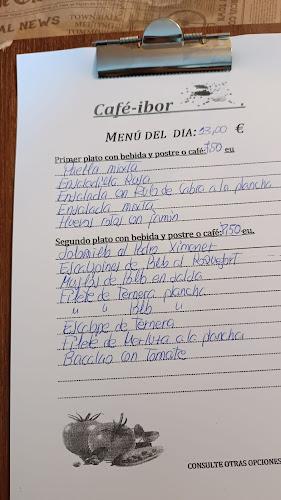 AL NEWS
TOWN HALL
MEETING
Café-ibor
MENÚ DEL DIA: 13,00 €
Primer plato con bebida y postre o café: 7'50 eu
Paella mixta
Ensaladilla Rusa
Ensalada con Rulo de Cabra a la plancha
Ensalada mixta
Huevos rotos con jamón
Segundo plato con bebida y postre o café: 9'50 eu.
Solomillo al Pedro Ximenez
Escalopines de Pollo al Roquefort
Muslos de Pollo en salsa
Filete de Ternera plancha
" " Pollo "
Escalope de Ternera
Filete de Merluza a la plancha
Bacalao con tomate
CONSULTE OTRAS OPCIONES